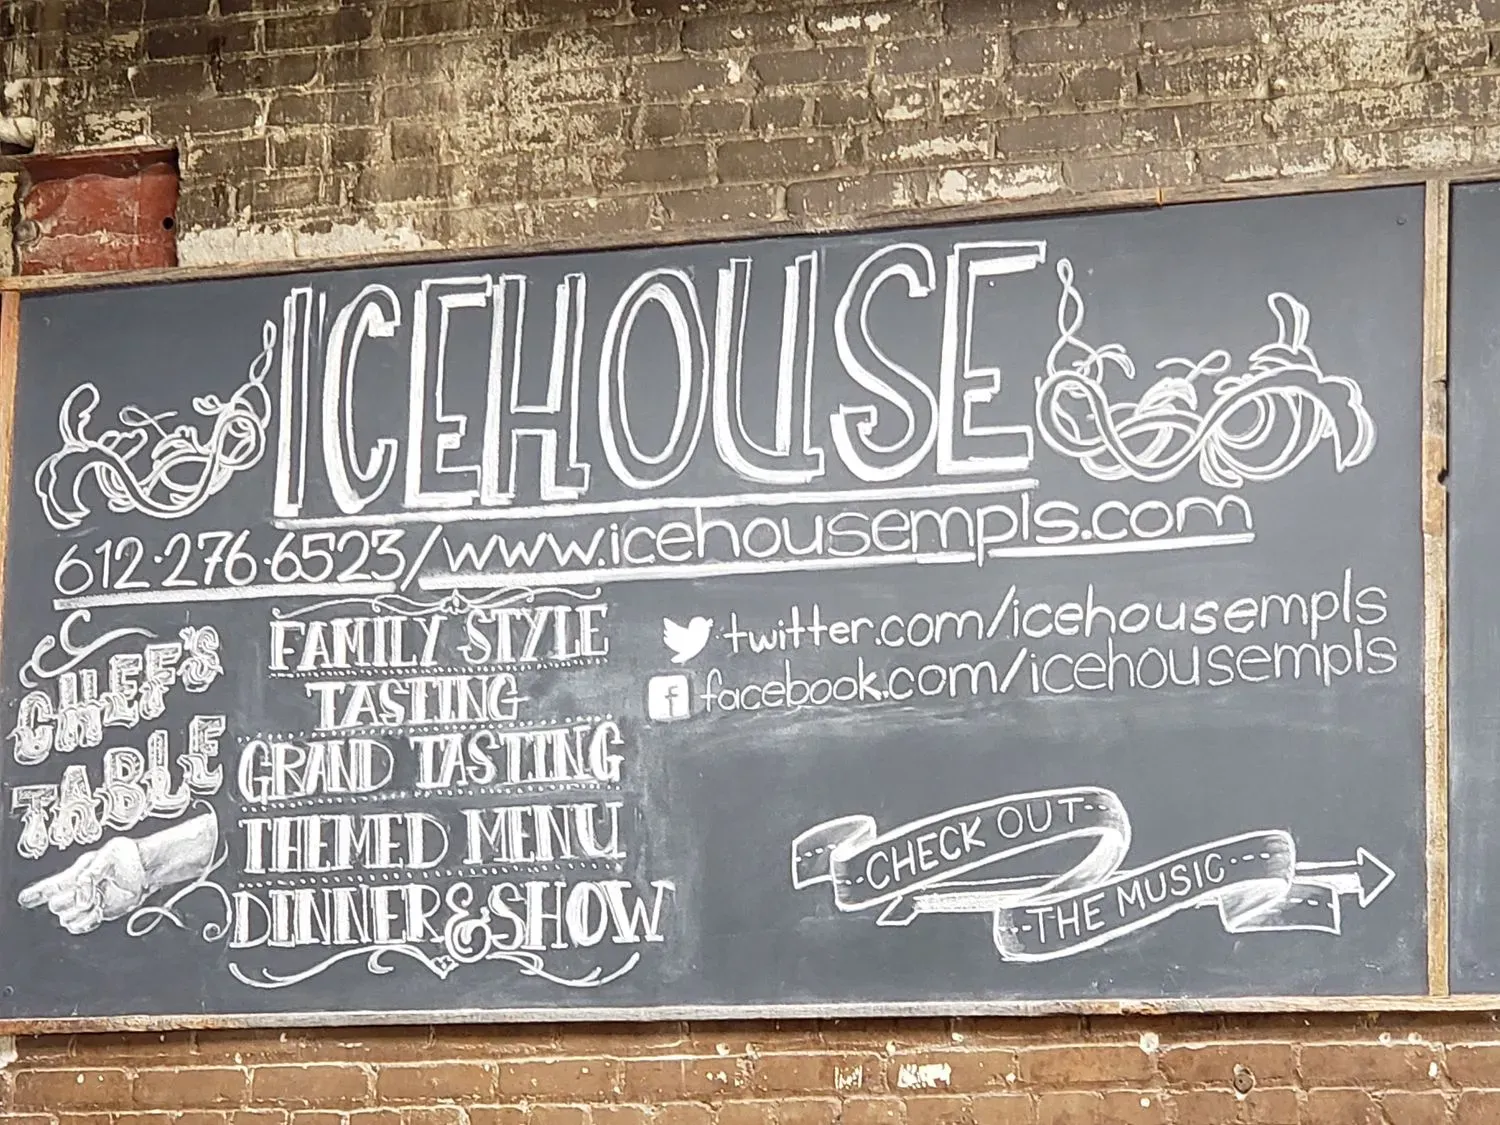 ICEHOUSE
612·276·6523/www.icehousempls.com
CHEF'S
TABLE
FAMILY STYLE
TASTING
GRAND TASTING
THEMED MENU
DINNER & SHOW
twitter.com/icehousempls
f facebook.com/icehousempls
CHECK OUT
THE MUSIC